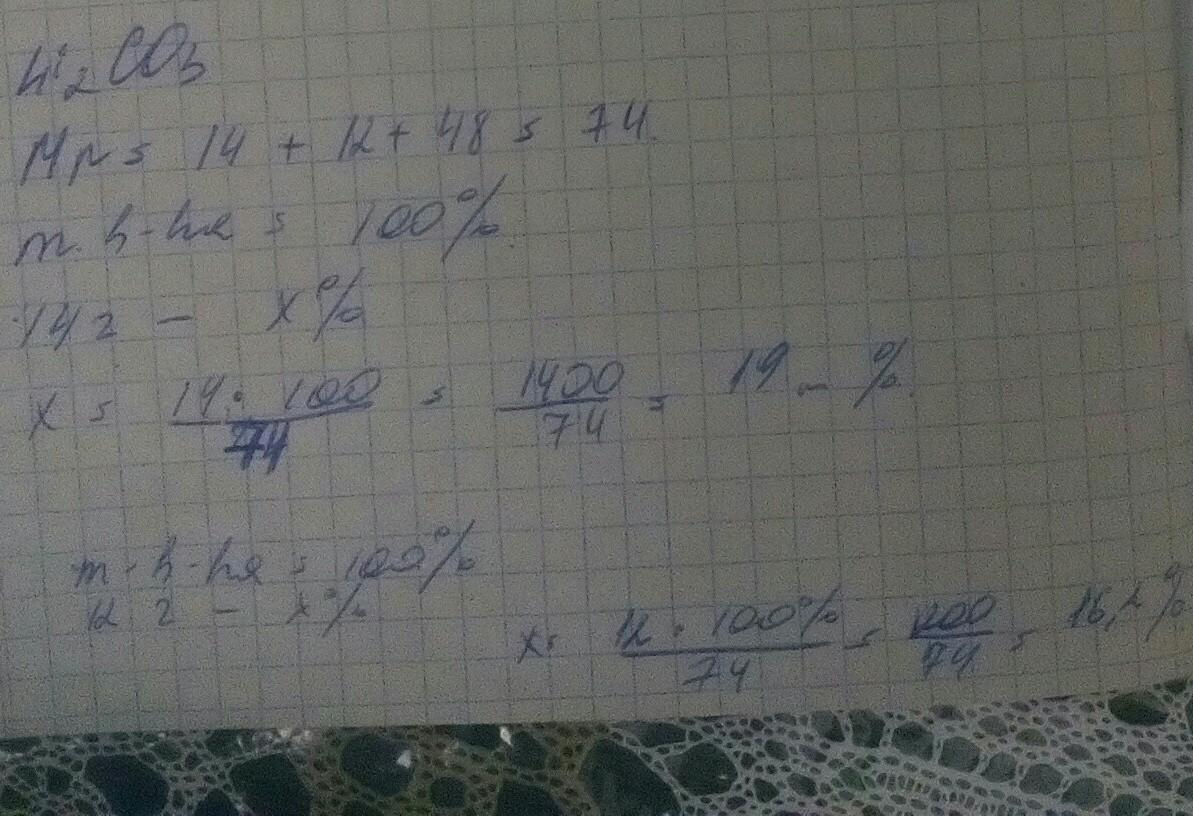 Li₂CO₃
Mr = 14 + 12 + 48 = 74.
m. в-ва = 100%.
14г - x%
x = 14 · 100 / 74 = 1400 / 74 = 19 %.
m. в-ва = 100%
12 г - x%
x = 12 · 100% / 74 = 1200 / 74 = 16,2%